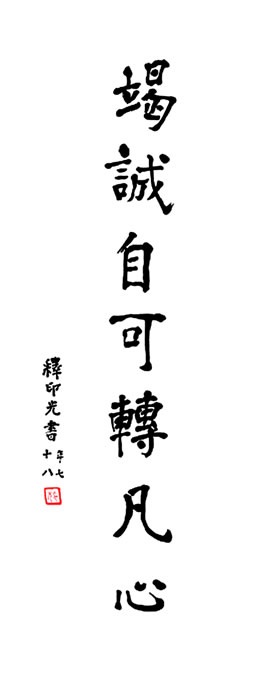 竭誠自可轉凡心
釋印光書
年七
十八